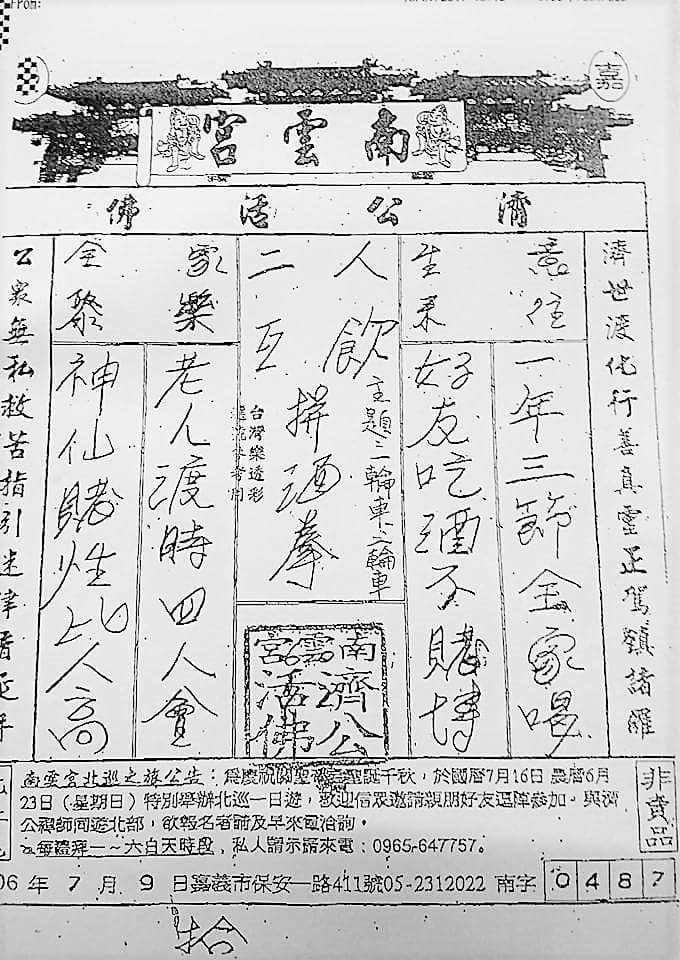 From:
嘉
南雲宮
濟公活佛
濟世渡化行善真靈正駕鎮諸羅
意住
生來
一年三節全家喝
好友吃酒不賭博
人飲
二互
拼酒拳
主題:二輪車之輪車
台灣樂透彩
還流參考用
家樂
全聚
老人渡時四人會
神仙賭性比人高
公眾無私救苦指引迷津
南雲宮
濟公
活佛
南雲宮北巡之旅公告：為慶祝關聖帝君聖誕千秋，於國曆7月16日 農曆6月
23日（星期日）特別舉辦北巡一日遊，歡迎信眾邀請親朋好友逗陣參加。與濟
公禪師同遊北部，欲報名者請及早來電洽詢。
每禮拜一～六白天時段，私人請示請來電：0965-647757。
非賣品
06年7月9日嘉義市保安一路411號05-2312022 南字 0487
拾